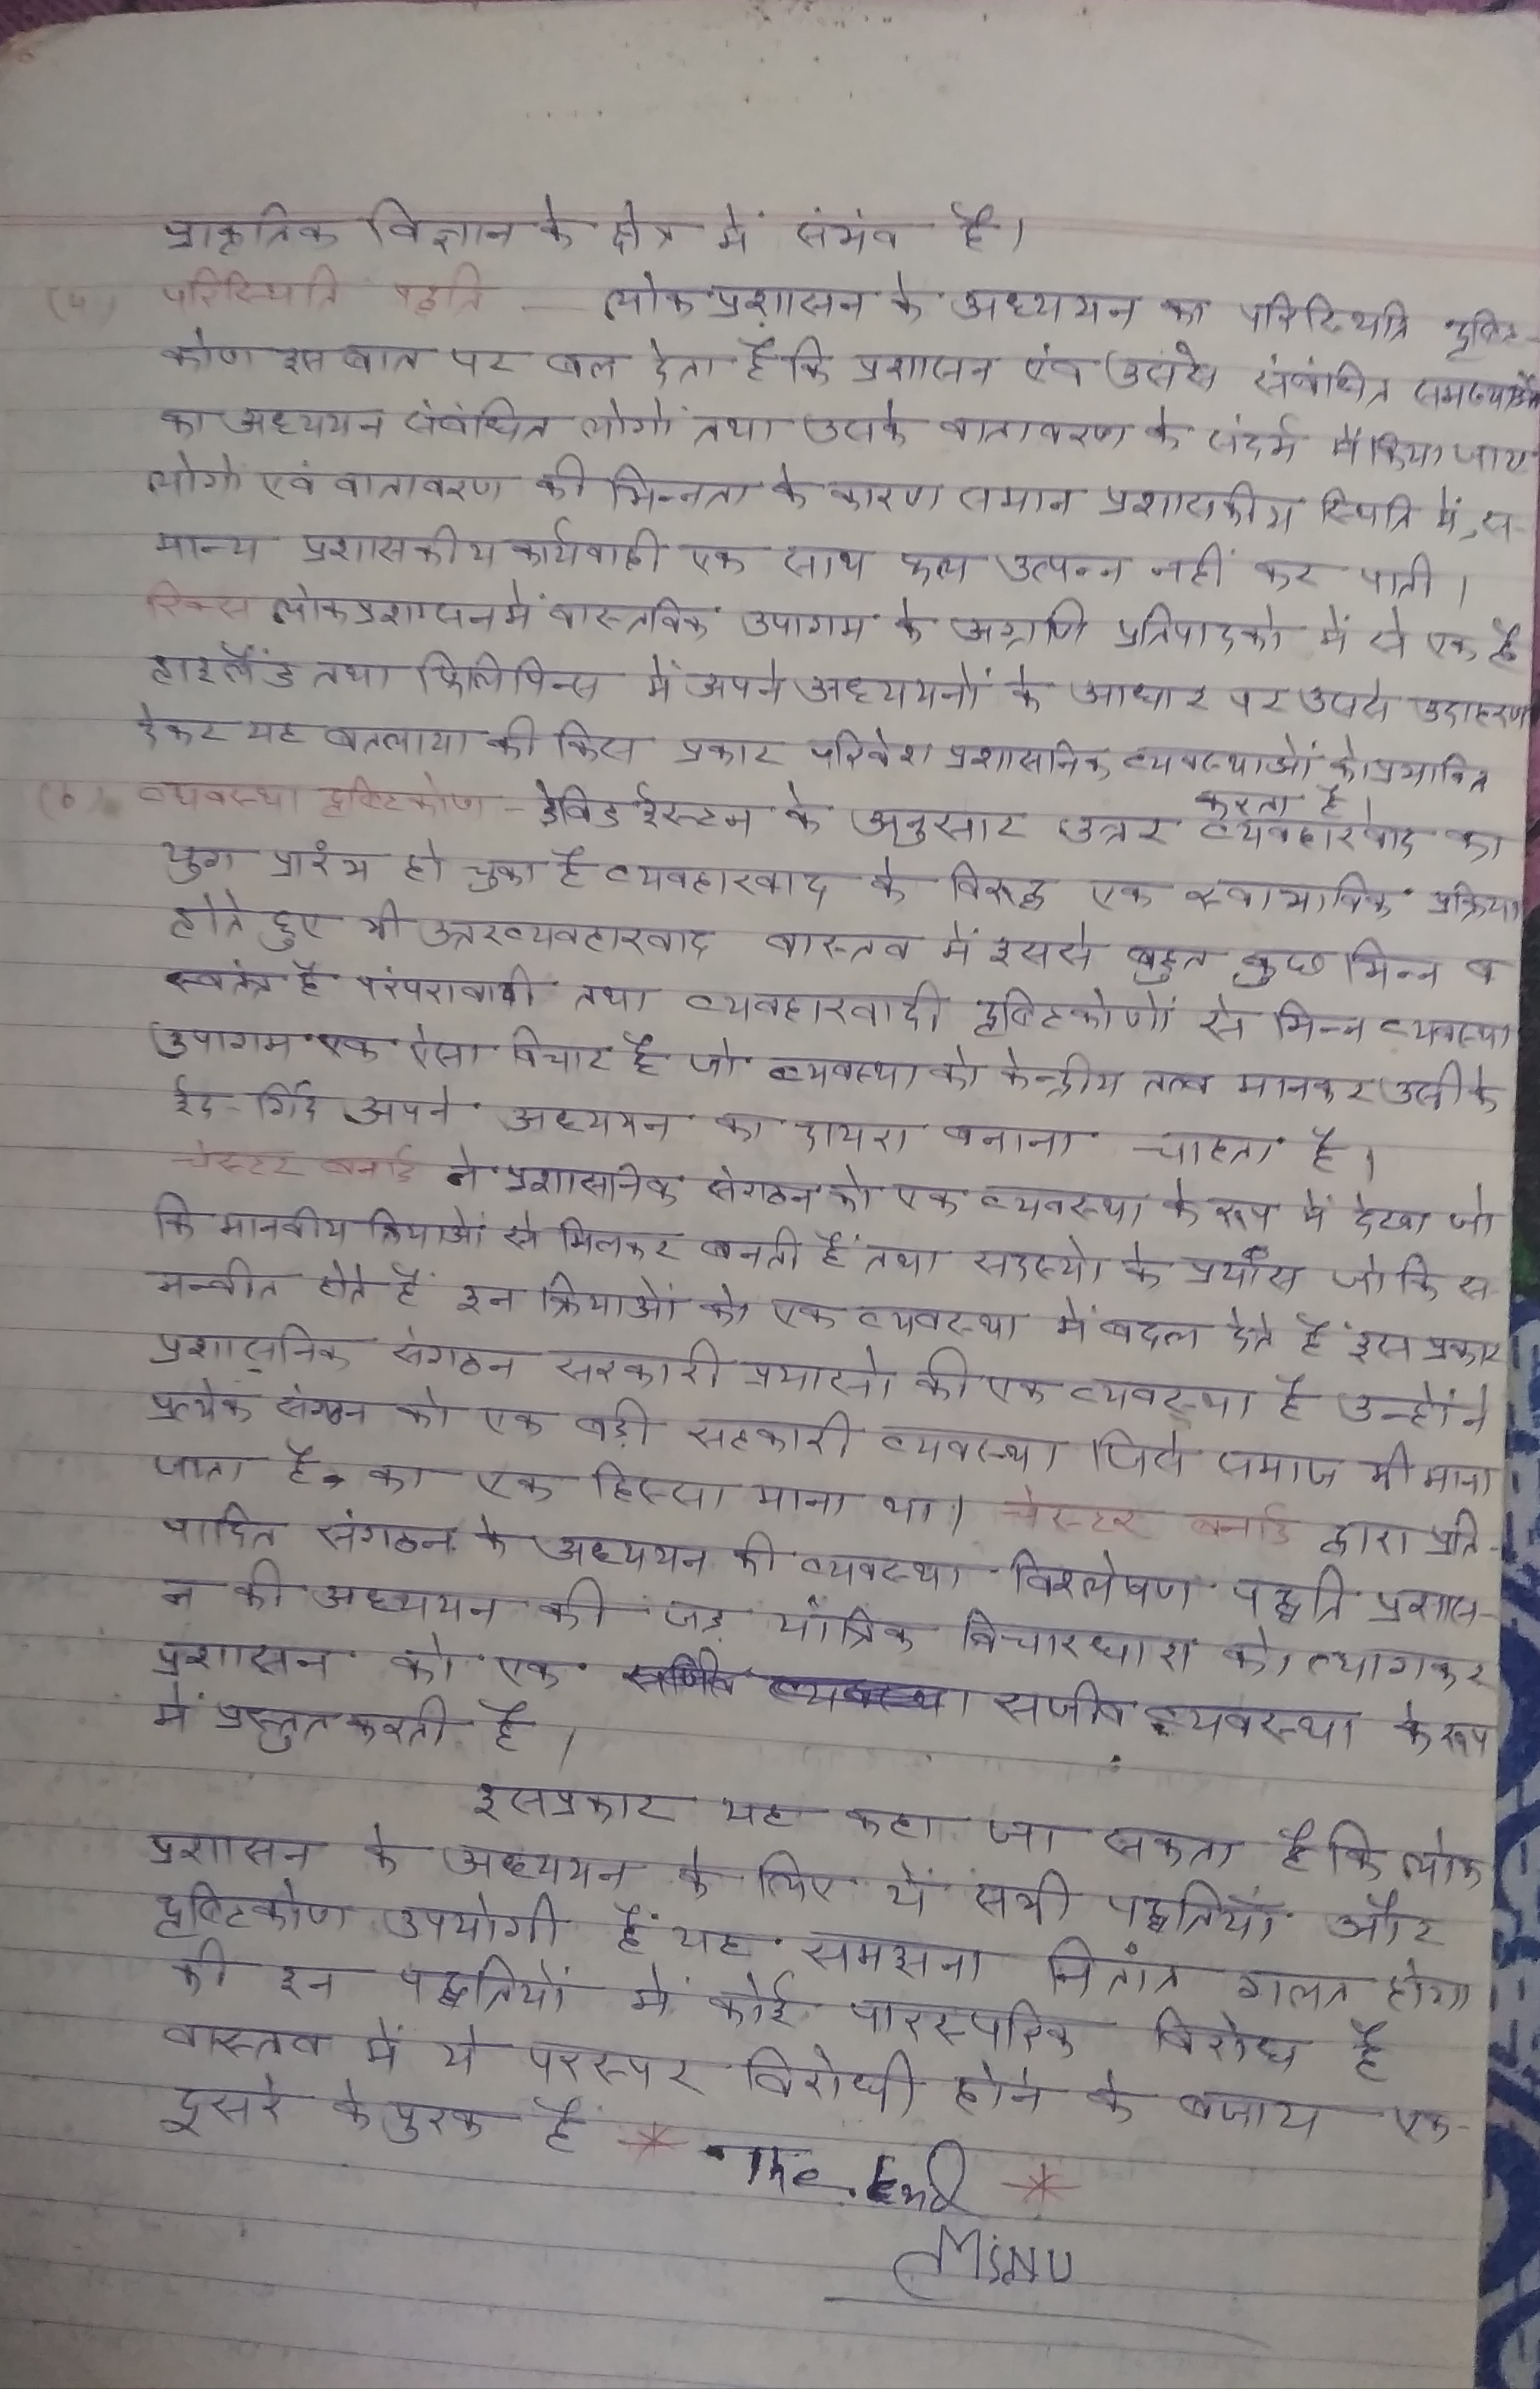 प्राकृतिक विज्ञान के क्षेत्र में संभंव है।
परिस्थिति पद्धति — लोकप्रशासन के अध्ययन का परिस्थिति दृष्टि-
कोण इस बात पर बल देता है कि प्रशासन एंव उससे संबंधित समस्याओं
का अध्ययन संबंधित लोगों तथा उसके वातावरण के संदर्भ में किया जाए
लोगो एवं वातावरण की भिन्नता के कारण समान प्रशासकीय स्थिति में, स-
मान्य प्रशासकीय कार्यवाही एक साथ फल उत्पन्न नहीं कर पाती।
रिक्स लोकप्रशासन में वास्तविक उपागम के अग्रणि प्रतिपादको में से एक है
थाइलैंड तथा फिलिपिन्स में अपने अध्ययनों के आधार पर उससे उदाहरण
देकर यह बतलाया की किस प्रकार परिवेश प्रशासनिक व्यवस्थाओं को प्रभावित
करता है।
(6) व्यवस्था दृष्टिकोण - डेविड ईस्टन के अनुसार उत्तर व्यवहारवाद का
युग प्रारंभ हो चुका है व्यवहारवाद के विरुद्ध एक स्वाभाविक प्रक्रिया
होते हुए भी उत्तरव्यवहारवाद वास्तव में इससे बहुत कुछ भिन्न व
स्वतंत्र है परंपरावादी तथा व्यवहारवादी दृष्टिकोणों से भिन्न व्यवस्था
उपागम एक ऐसा विचार है जो व्यवस्था को केन्द्रीय तत्व मानकर उसी के
ईद-गिर्द अपने अध्ययन का दायरा बनाना चाहता है।
चेस्टर बर्नाड ने प्रशासनिक संगठन को एक व्यवस्था के रूप में देखा जो
कि मानवीय क्रियाओं से मिलकर बनती हैं तथा सदस्यो के प्रयास जो कि स-
मन्वीत होते हैं इन क्रियाओं को एक व्यवस्था में बदल देते हैं इस प्रकार
प्रशासनिक संगठन सरकारी प्रयासो की एक व्यवस्था है उन्होंने
प्रत्येक संगठन को एक बड़ी सहकारी व्यवस्था जिसे समाज भी माना
जाता है, का एक हिस्सा माना था। चेस्टर बर्नाड द्वारा प्रति-
पादित संगठन के अध्ययन की व्यवस्था विश्लेषण पद्धति प्रशास-
न की अध्ययन की जड़ यांत्रिक विचारधारा को त्यागकर
प्रशासन को एक सजीव व्यवस्था के रूप
में प्रस्तुत करती है।
इसप्रकार यह कहा जा सकता है कि लोक
प्रशासन के अध्ययन के लिए यें सभी पद्धतियाँ और
दृष्टिकोण उपयोगी हैं यह समझना नितांत गलत होगा
की इन पद्धतियों में कोई पारस्परिक विरोध है
वास्तव में ये परस्पर विरोधी होने के बजाय एक-
दुसरे के पुरक हैं * The End *
MiNU